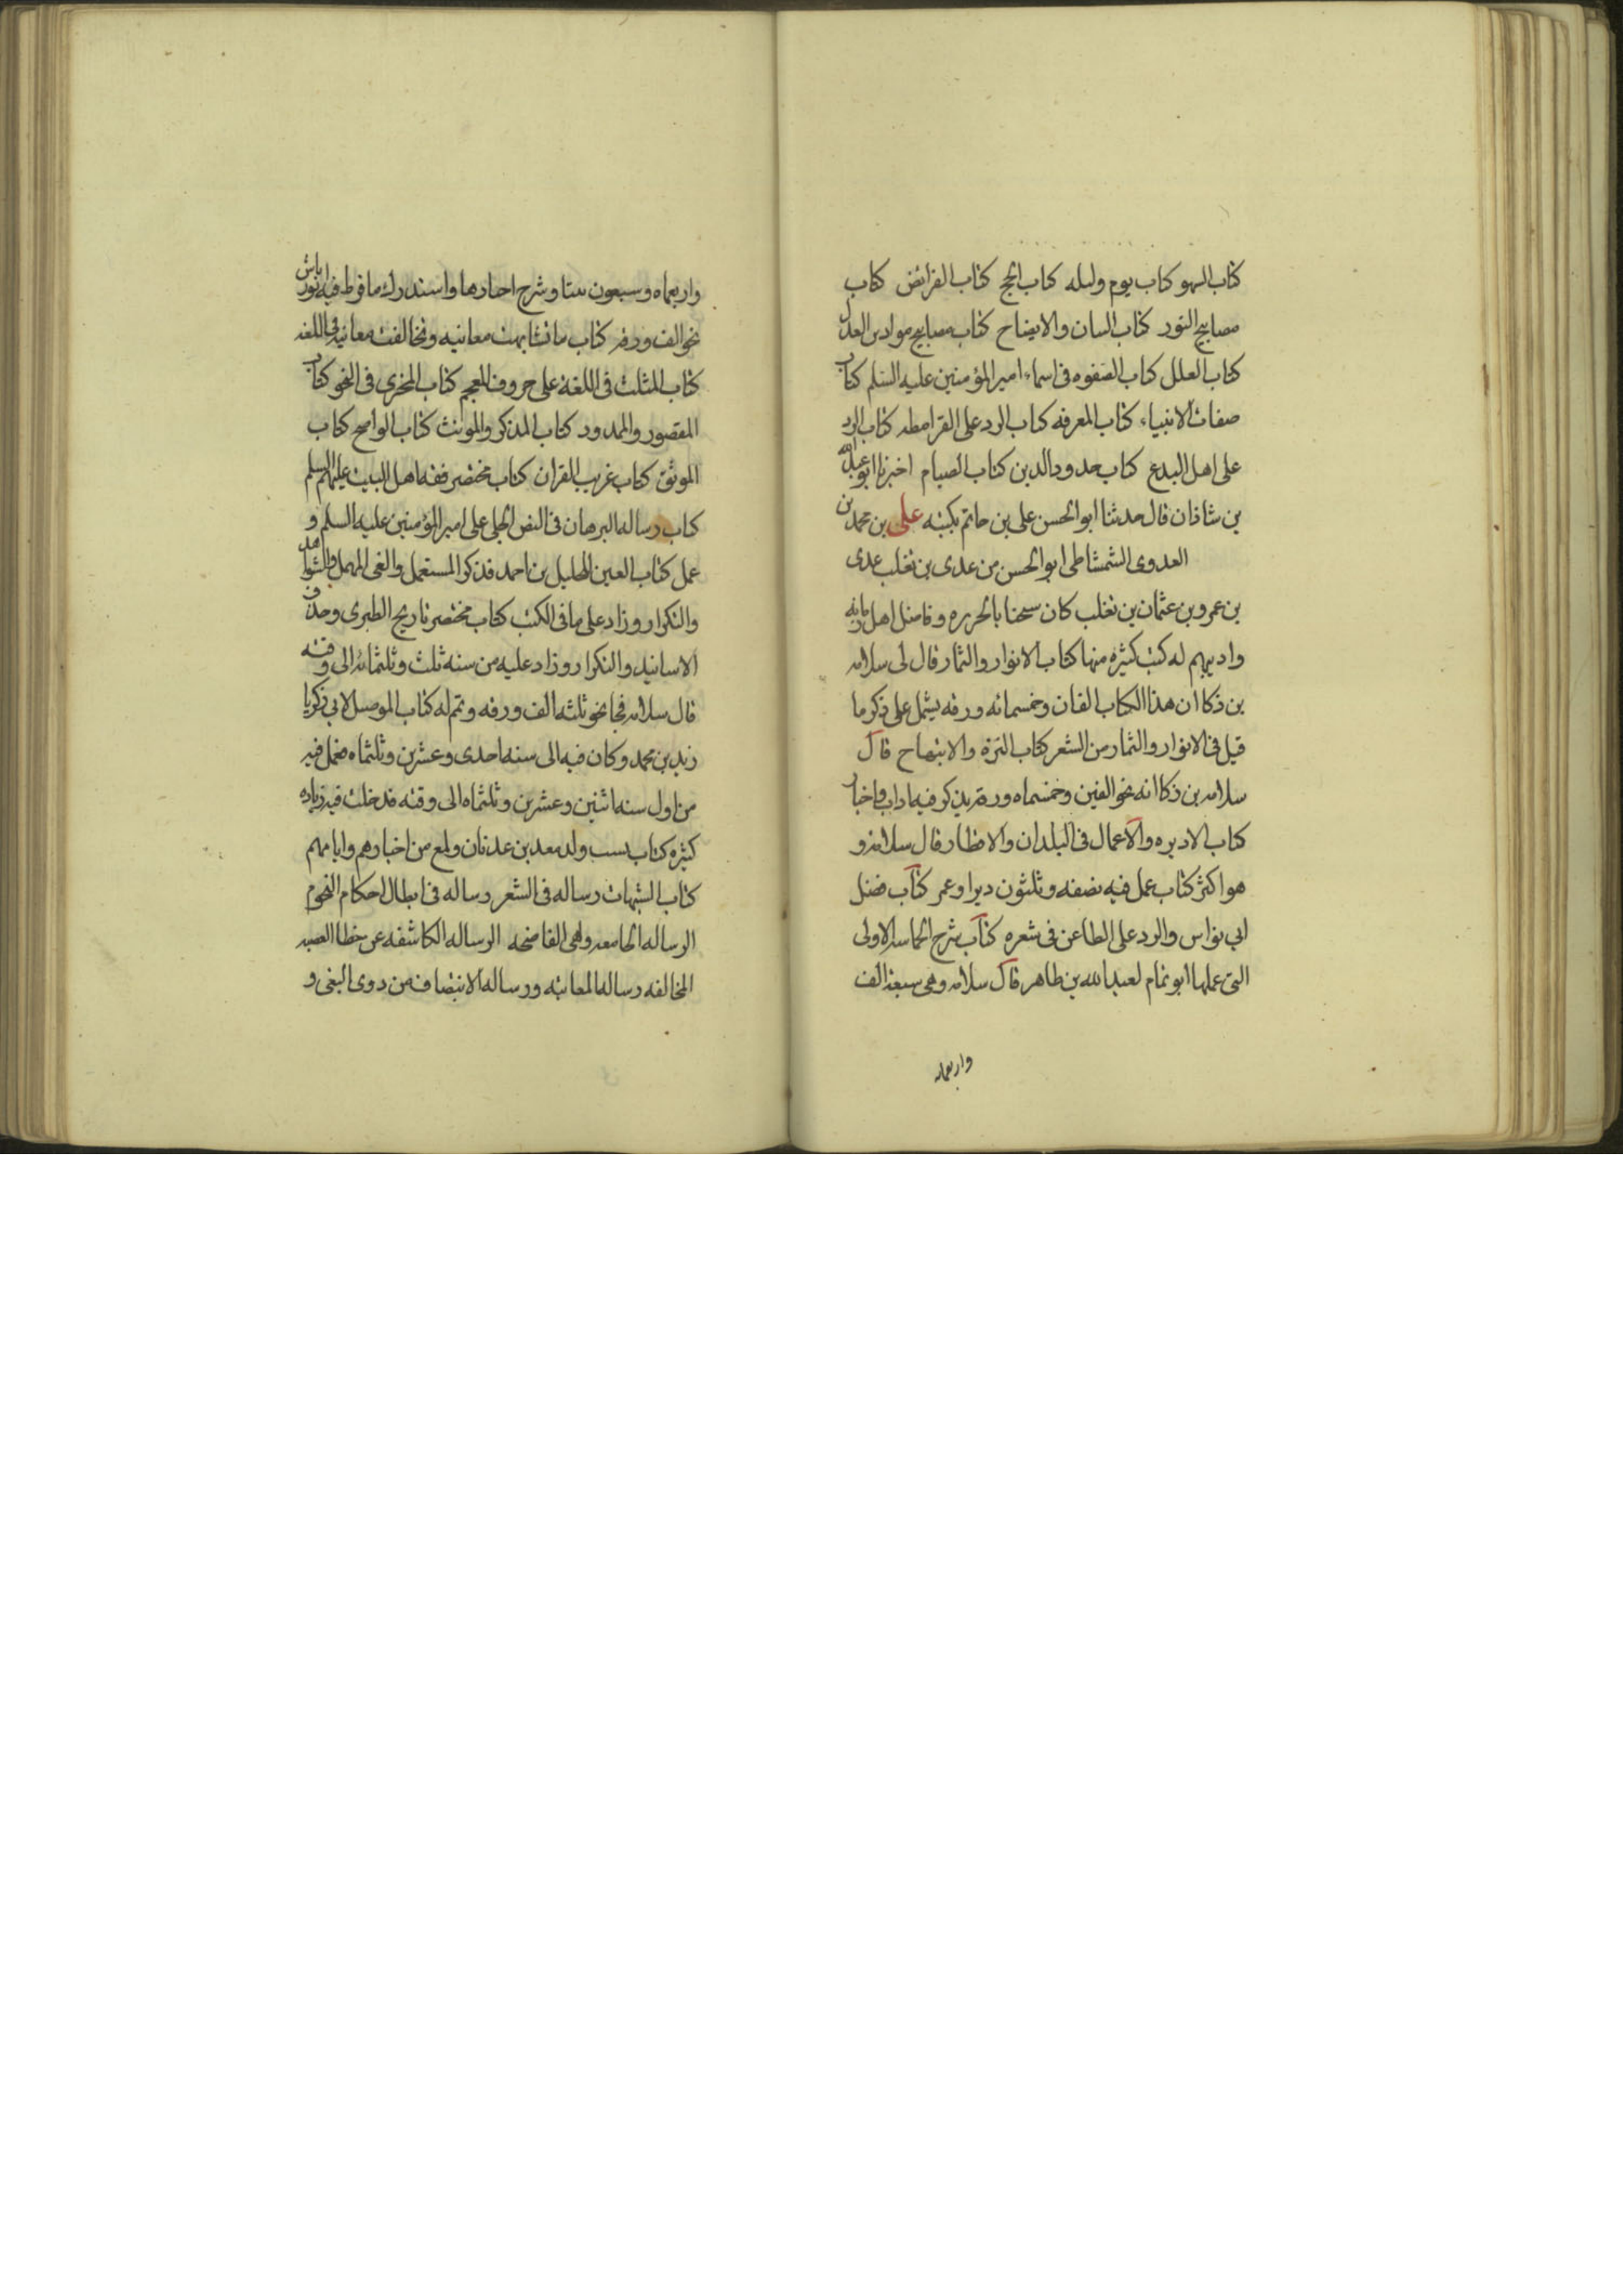 كتاب السهو كتاب يوم وليله كتاب الحج كتاب الفرائض كتاب
مصابيح النور كتاب البيان والايضاح كتاب مصابيح موازين العدل
كتاب العلل كتاب الصفوه فى اسماء امير المؤمنين عليه السلم كتاب
صفات الانبياء كتاب المعرفه كتاب الرد على القرامطه كتاب الرد
على اهل البدع كتاب حدود الدين كتاب الصيام اخبرنا ابو عبد الله
بن شاذان قال حدثنا ابو الحسن على بن حاتم بكتبه على بن محمد بن
العدوى الشمشاطى ابو الحسن من عدى بن تغلب عدى
بن عمرو بن عثمان بن تغلب كان شيخنا بالجزيره وفاضل اهل زمانه
واديبهم له كتب كثيره منها كتاب الانوار والثمار قال لى سلامه
بن ذكا ان هذا الكتاب الفان وخمسمائه ورقه يشتمل على ذكر ما
قيل فى الانوار والثمار من الشعر كتاب النزه والابتهاج قال
سلامه بن ذكا انه نحو الفين وخمسماه ورقه يذكر فيه اداب واخبار
كتاب الاديره والاعمال فى البلدان والاقطار قال سلامه و
هو اكثر كتاب عمل فيه نصفه وثلثون ديرا وعمر كتاب فضل
ابى نواس والرد على الطاعن فى شعره كتاب شرح الحماسه الاولى
التى عملها ابو تمام لعبد الله بن طاهر قال سلامه وهى سبعة الف
واربعماه
واربعماه وسبعون بيتا وشرح اخبارها واستدرك ما فرط فيه ابو رياش
نحو الف ورقه كتاب ما تشابهت معانيه وتخالفت معانيه فى اللغه
كتاب المثلث فى اللغة على حروف المعجم كتاب المجزى فى النحو كتاب
المقصور والممدود كتاب المذكر والمونث كتاب الواضح كتاب
الموثق كتاب غريب القران كتاب مختصر فقه اهل البيت عليهم السلم
كتاب رساله البرهان فى النص الجلى على امير المؤمنين عليه السلم و
عمل كتاب العين للخليل بن احمد فذكر المستعمل والغى المهمل والشواهد
والتكرار وزاد على ما فى الكتب كتاب مختصر تاريخ الطبرى وحذف
الاسانيد والتكرار وزاد عليه من سنه ثلث وثلثمائه الى وقته
قال سلامه فجا نحو ثلثه الف ورقه وتمم له كتاب الموصل لابى زكريا
زيد بن محمد وكان فيه الى سنه احدى وعشرين وثلثماه فعمل فيه
من اول سنه اثنين وعشرين وثلثماه الى وقته فدخلت فيه زياده
كثيره كتاب نسب ولد معد بن عدنان ولمع من اخبارهم وايامهم
كتاب الشبهات رساله فى الشعر رساله فى ابطال احكام النجوم
الرساله الجامعه وهى الفاضحه الرساله الكاشفه عن خطا العصبه
المخالفه رساله المعاتبه ورساله الانتصاف من ذوى البغى و